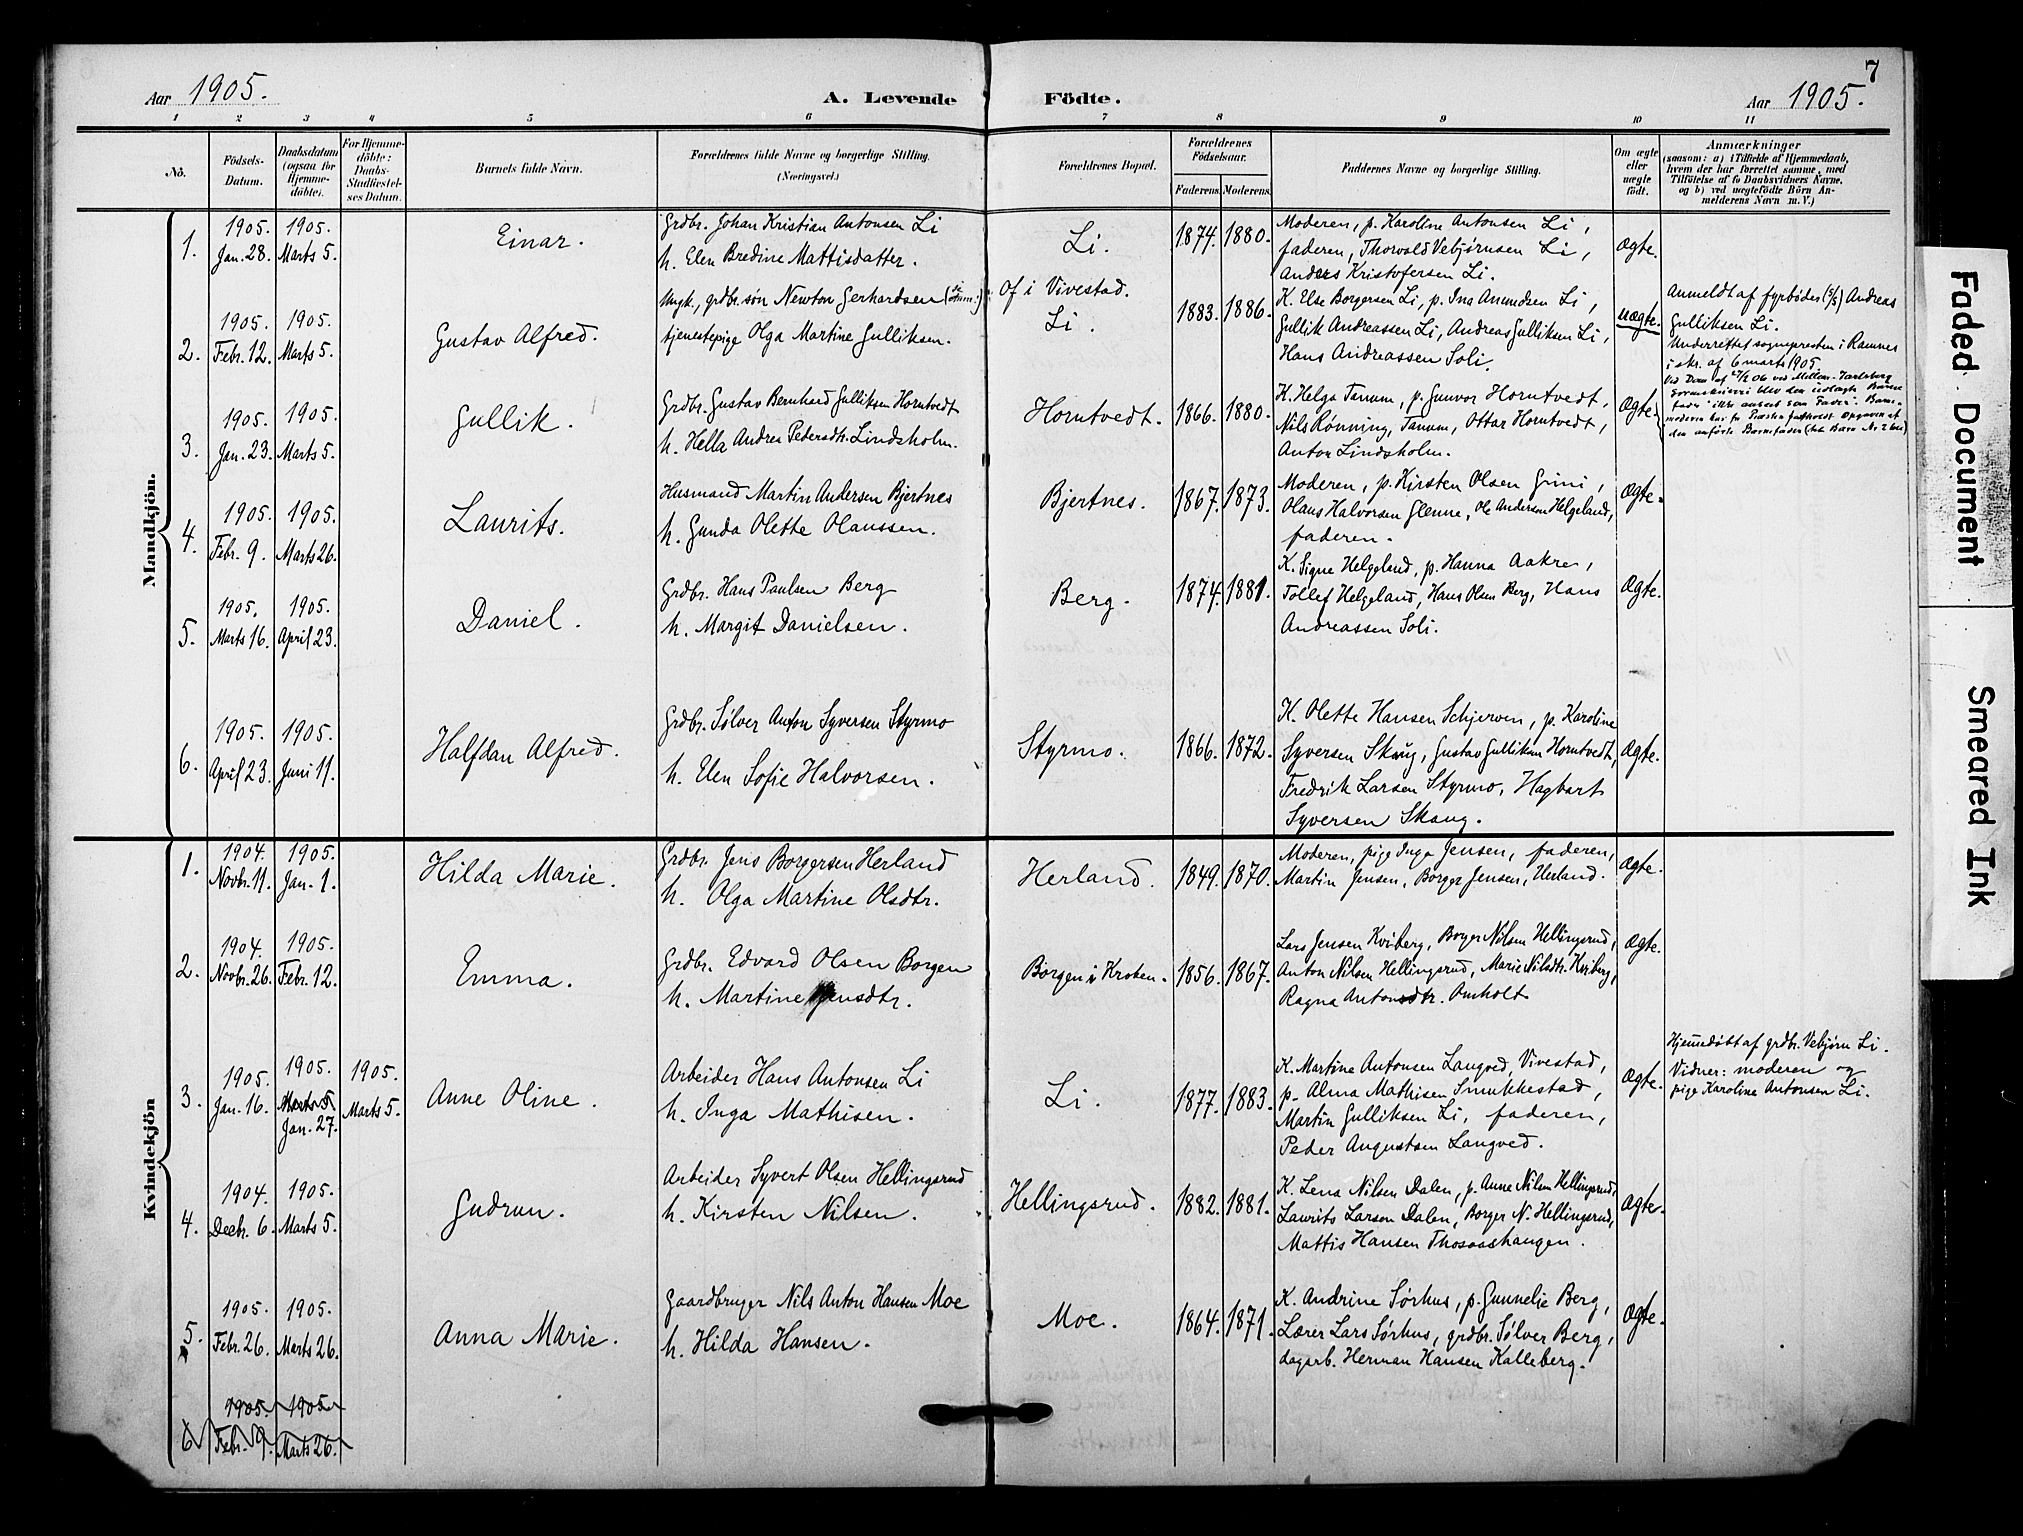 7
Aar 1905.
A. Levende Födte.
Aar 1905.
1 2 3 4 5 6 7 8 9 10 11
No.
Födsels-
Datum.
Daabsdatum
(ogsaa for
Hjemme-
döbte).
For Hjemme-
döbte:
Daabs-
Stadfæstel-
ses Datum.
Barnets fulde Navn.
Forældrenes fulde Navne og borgerlige Stilling.
(Næringsvei.)
Forældrenes Bopæl.
Forældrenes
Födselsaar.
Faderens. Moderens.
Faddernes Navne og borgerlige Stilling.
Om ægte
eller
uægte
födt.
Anmærkninger
(saasom: a) i Tilfælde af Hjemmedaab,
hvem der har forrettet samme, med
Tilföielse af to Daabsvidners Navne,
og b) ved uægtefödte Börn An-
melderens Navn m. V.)
Mandkjön.
1.
1905.
Jan. 28.
1905.
Marts 5.
Einar.
Grdbr. Johan Kristian Antonsen Li
h. Elen Bredine Mattisdatter.
Li.
1874. 1880.
Moderen, p. Karoline Antonsen Li,
faderen, Thorvald Vebjørnsen Li,
Anders Kristofersen Li.
Ægte.
2.
1905.
Febr. 12.
1905.
Marts 5.
Gustav Alfred.
Ungk., grdbr. søn Newton Gerhardsen
tjenestepige Olga Martine Gulliksen.
Of i Vivestad.
Li.
1883. 1886.
K. Else Borgersen Li, p. Ina Amundsen Li,
Gullik Andreassen Li, Andreas Gulliksen Li,
Hans Andreassen Soli.
uægte.
Anmeldt af fyrbøder (5/3) Andreas
Gulliksen Li.
Underrettet sognepresten i Ramnes
i skr. af 6 marts 1905.
3.
1905.
Jan. 23.
1905.
Marts 5.
Gullik.
Grdbr. Gustav Bernhard Gulliksen Horntvedt
h. Hella Andrea Pedersdtr. Lindsholm.
Horntvedt.
1866. 1880.
K. Helga Tanum, p. Gunvor Horntvedt,
Nils Rønning, Tanum, Ottar Horntvedt,
Anton Lindsholm.
Ægte.
4.
1905.
Febr. 9.
1905.
Marts 26.
Laurits.
Husmand Martin Andersen Bjertnes
h. Gunda Olette Olaussen.
Bjertnes.
1867. 1873.
Moderen, p. Kirsten Olsen Grini,
Olaus Halvorsen Glenne, Ole Anderson Helgeland,
faderen.
Ægte.
5.
1905.
Marts 16.
1905.
April 23.
Daniel.
Grdbr. Hans Paulsen Berg
h. Margit Danielsen.
Berg.
1874. 1881.
K. Signe Helgeland, p. Hanna Aakre,
Tollef Helgeland, Hans Olsen Berg, Hans
Andreassen Soli.
Ægte.
6.
1905.
April 23.
1905.
Juni 11.
Halfdan Alfred.
Grdbr. Sølver Anton Syversen Styrmo
h. Elen Sofie Halvorsen.
Styrmo.
1866. 1872.
K. Olette Hansen Schjerven, p. Karoline
Syversen Skaug, Gustav Gulliksen Horntvedt,
Fredrik Larsen Styrmo, Hagbart
Syversen Skaug.
Ægte.
Kvindekjön
1.
1904.
Novbr. 11.
1905.
Jan. 1.
Hilda Marie.
Grdbr. Jens Borgersen Herland
h. Olga Martine Olsdtr.
Herland.
1849. 1870.
Moderen, pige Inga Jensen, faderen,
Martin Jensen, Borger Jensen, Herland.
Ægte.
2.
1904.
Novbr. 26.
1905.
Febr. 12.
Emma.
Grdbr. Edvard Olsen Borgen
h. Martine Jensdtr.
Borgen i Kroken.
1856. 1867.
Lars Jensen Kviberg, Borger Nilsen Hellingsrud,
Anton Nilsen Hellingsrud, Marie Nilsdtr. Kviberg,
Ragna Antonsdtr. Omholt
Ægte.
3.
1905.
Jan. 16.
1905.
Marts 5
Jan. 27.
1905.
Marts 5.
Anne Oline.
Arbeider Hans Antonsen Li
h. Inga Mathisen.
Li.
1877. 1883.
K. Martine Antonsen Langved, Vivestad,
p. Alma Mathisen Smukkestad,
Martin Gulliksen Li, faderen,
Peder Augustsen Langved.
Ægte.
Hjemmedøbt af grdbr. Vebjørn Li.
Vidner: moderen og
pige Karoline Antonsen Li.
4.
1904.
Decbr. 6.
1905.
Marts 5.
Gudrun.
Arbeider Syvert Olsen Hellingsrud
h. Kirsten Nilsen.
Hellingsrud.
1882. 1881.
K. Lena Nilsen Dalen, p. Anne Nilsen Hellingsrud,
Laurits Larson Dalen, Borger N. Hellingsrud,
Mattis Hansen Thosaashaugen.
Ægte.
5.
1905.
Febr. 26.
1905.
Marts 26.
Anna Marie.
Gaardbruger Nils Anton Hansen Moe
h. Hilda Hansen.
Moe.
1864. 1871.
K. Andrine Sørhus, p. Gunnelie Berg,
Lærer Lars Sørhus, grdbr. Sølver Berg,
dagarb. Herman Hansen Kalleberg.
Ægte.
6
1905.
Febr. 9.
1905.
Marts 26.
Faded Document
Smeared Ink